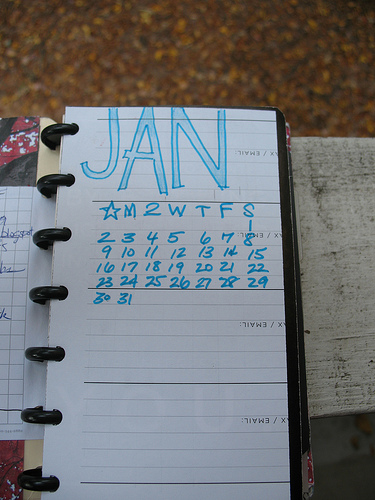 JAN
☆ M 2 W T F S
1
2 3 4 5 6 7 8
9 10 11 12 13 14 15
16 17 18 19 20 21 22
23 24 25 26 27 28 29
30 31
AX / EMAIL:
AX / EMAIL:
AX / EMAIL:
AX / EMAIL: